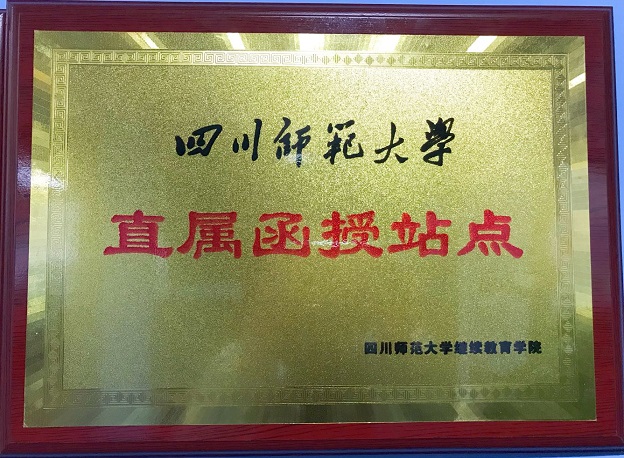 四川師範大學
直属函授站点
四川师范大学继续教育学院